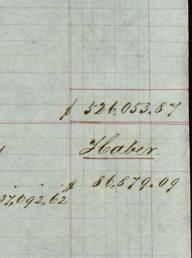 $ 526,053.87
Haber
$ 86,879.09
37,092,62